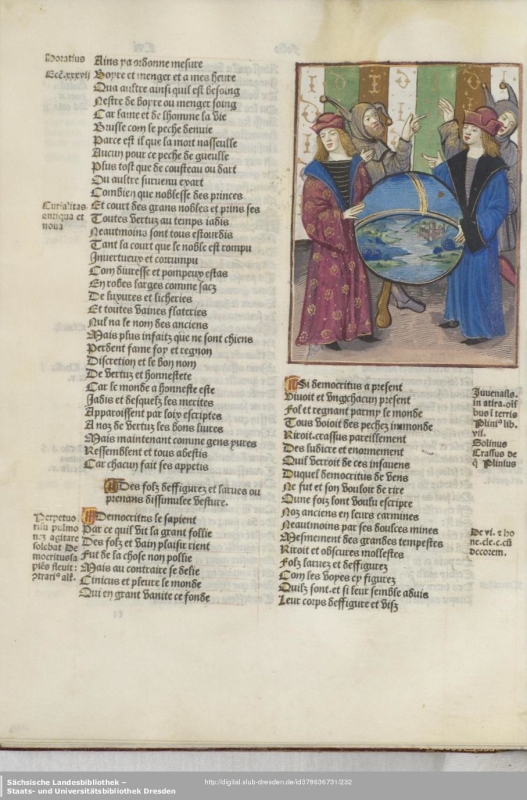 Horatius
Ains ya ordonne mesure
Ecc̄.xxxvij
Boyre et menger et a mes heure
Qua aultre ainsi quil est besoing
Nestre de boyre ou menger soing
Car saine et de lhomme la vie
Buisse com le peche denuie
Parce est il que la mort nasseulle
Aucun pour ce peche de gueulle
Plus tost que de cousteau ou dart
Ou aultre suruenu exart
Combien que noblesse des princes
Curialitas
antiqua et
noua
Et court des grans nobles et prins ses
Toutes vertuz au temps iadis
Neautmoins sont tous estourdis
Tant la court que le noble est rompu
Inuertueux et corrumpu
Com yuresse et pompeux estas
En robes larges comme sacz
De luxures et licheries
Et toutes vaines flateries
Nul na le nom des anciens
Mais plus infaitz que ne sont chiens
Perdent fame foy et regnon
Discretion et le bon nom
De vertuz et honnestete
Car le monde a honneste este
Iadis et desquelz les merites
Apparoissent par loix escriptes
A noz de vertuz les bons liures
Mais maintenant comme gens yures
Ressemblent et tous abestis
Car chacun fait ses appetis
Des folz deffigurez et larues ou
prenans dissimulee vesture.
Perpetuo
risu pulmo
nez agitare
solebat De
mocritus
Democritus le sapient
Par ce quil vit la grant follie
Des folz et vain plaisir rient
Fut de la chose non pollie
Mais au contraire se deslie
Cinicus et pleure le monde
Qui en grant vanite ce fonde
Si democritus a present
Viuoit et vngchacun present
Fol et regnant parmy le monde
Tous voioit des pechez immonde
Riroit.crassus pareillement
Des ludicre et enormement
Quil verroit de ces insauens
Duquel democritus de vens
Ne fut et son vouloir de rire
Qune foiz lont voulu escripre
Noz anciens en leurs carmines
Neautmoins par ses doulces mines
Mesmement des grandes tempestes
Riroit et obscures mollestes
Folz laruez et deffigurez
Com les voyes cy figurez
Quilz sont.et si leur semble aduis
Leur corps deffigure et visz
Iuuenalis.
in atira.oīī
bus i terris
Plini⁹ lib.
vii.
Solinus
Crassus de
q̄ Plinius
De vi. z ho
ne.cle.c.cū
decorem.
Sächsische Landesbibliothek –
Staats- und Universitätsbibliothek Dresden
http://digital.slub-dresden.de/id379636731/232